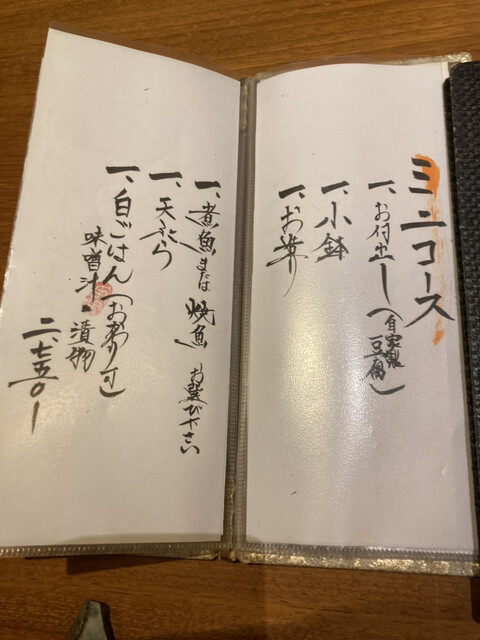 ミニコース
一、お付出し(自家製豆腐)
一、小鉢
一、お造り
一、煮魚または焼魚 お選び下さい
一、天ぷら
一、白ごはん(お替り可)
味噌汁・漬物
二、七五〇ー